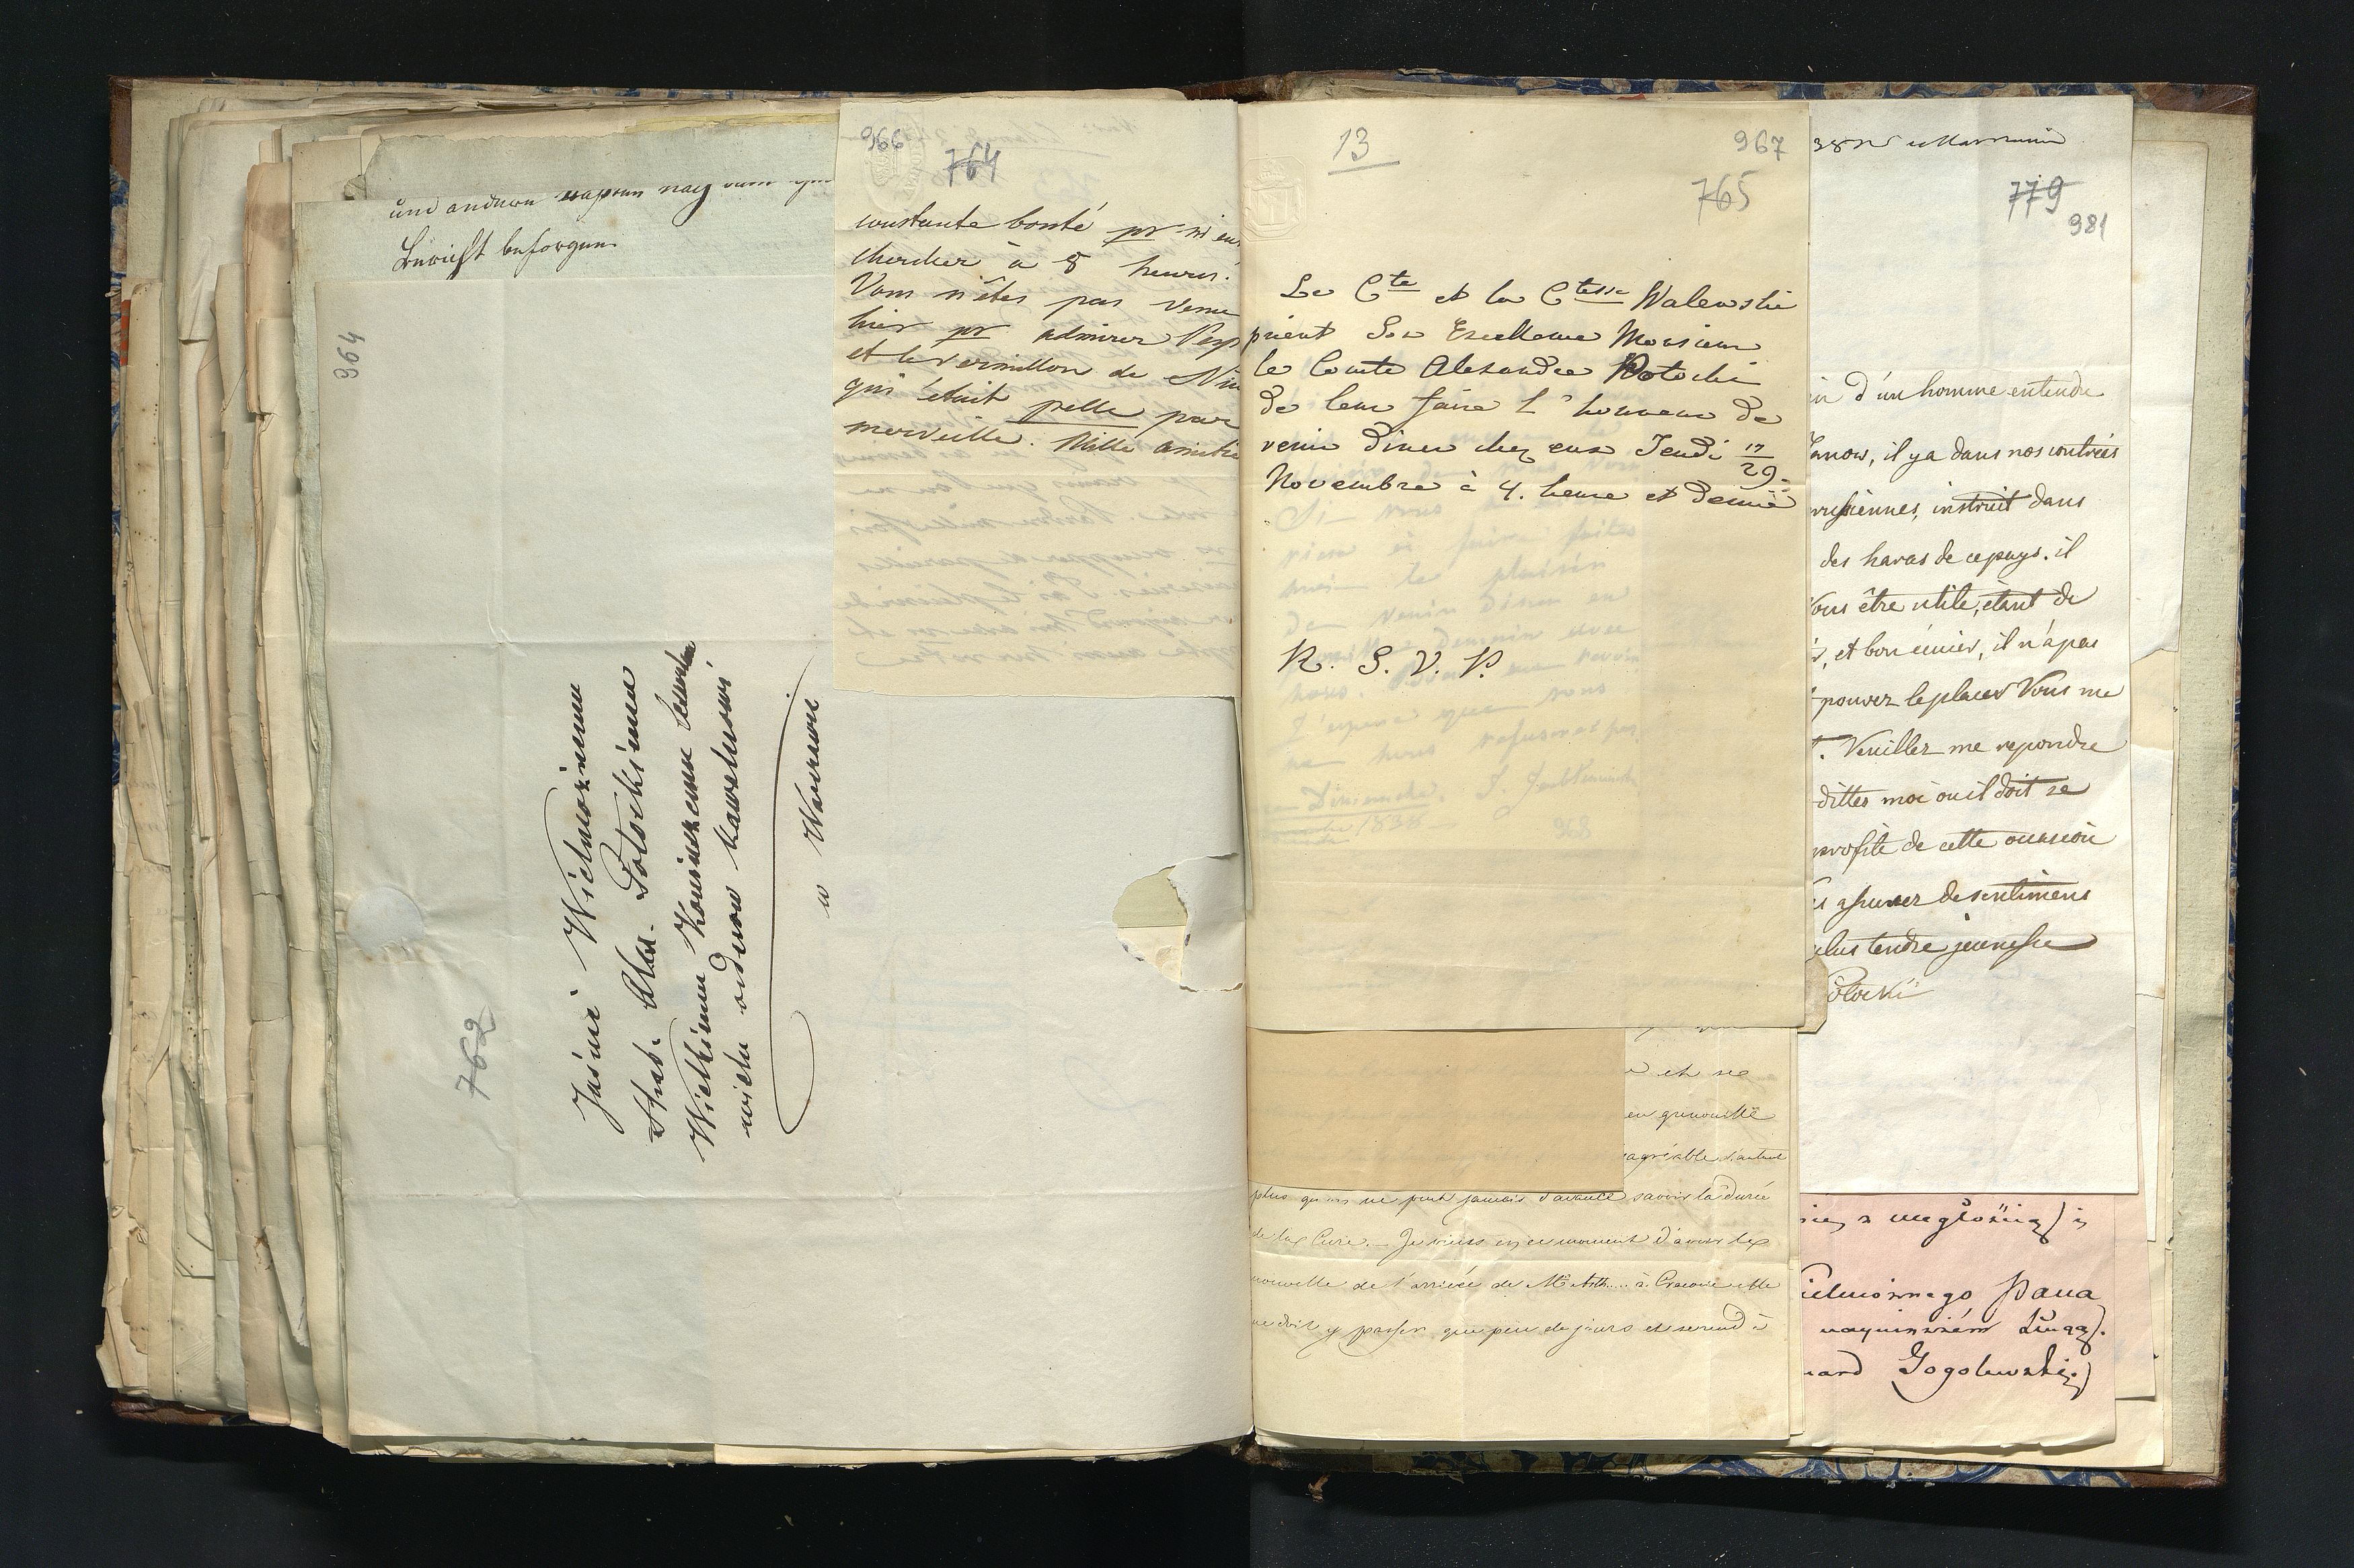 und andern
besorgen
964
762
Jaśnie Wielmożnemu
Hrab. Alex. Potockiemu
Wielkiemu Koniuszemu
wielu orderów kawalerowi
w Warszawie
966
764
constante bonté pr
chercher à 8 heures.
Vous n'êtes pas venu
hier pr admirer
et le vermillon de
qui était pelle par
merveille. Mille
13
967
765
Le Cte et la Ctesse Walewski
prient Son Excellence Monsieur
le Comte Alexandre Potocki
de leur faire l'honneur de
venir diner chez eux Jeudi 17/29
Novembre à 4. heure et demie
R. S. V. P.
Si vous
rien à faire faites
moi le plaisir
de venir diner en
demain avec
nous.
J'espère que vous
ne nous refuserez pas
Dimanche.
1838
968
et se
en grenouille
agréable d'autant
plus qu'on ne peut jamais d'avance savoir la durée
de la Cure. Je viens en ce moment d'avoir la
nouvelle de l'arrivée de à Cracovie elle
ne doit y passer que peu de jours et se rend à
779
981
d'un homme entendu
il y a dans nos contrées
instruit dans
des haras de ce pays. il
Vous être utile, étant de
et bon écuier, il n'a pas
pouvez le placer Vous me
Veuillez me repondre
dittes moi où il doit se
profite de cette occasion
assurer de sentimens
plus tendre jeunesse
Potocki
Pana
Gogolewski